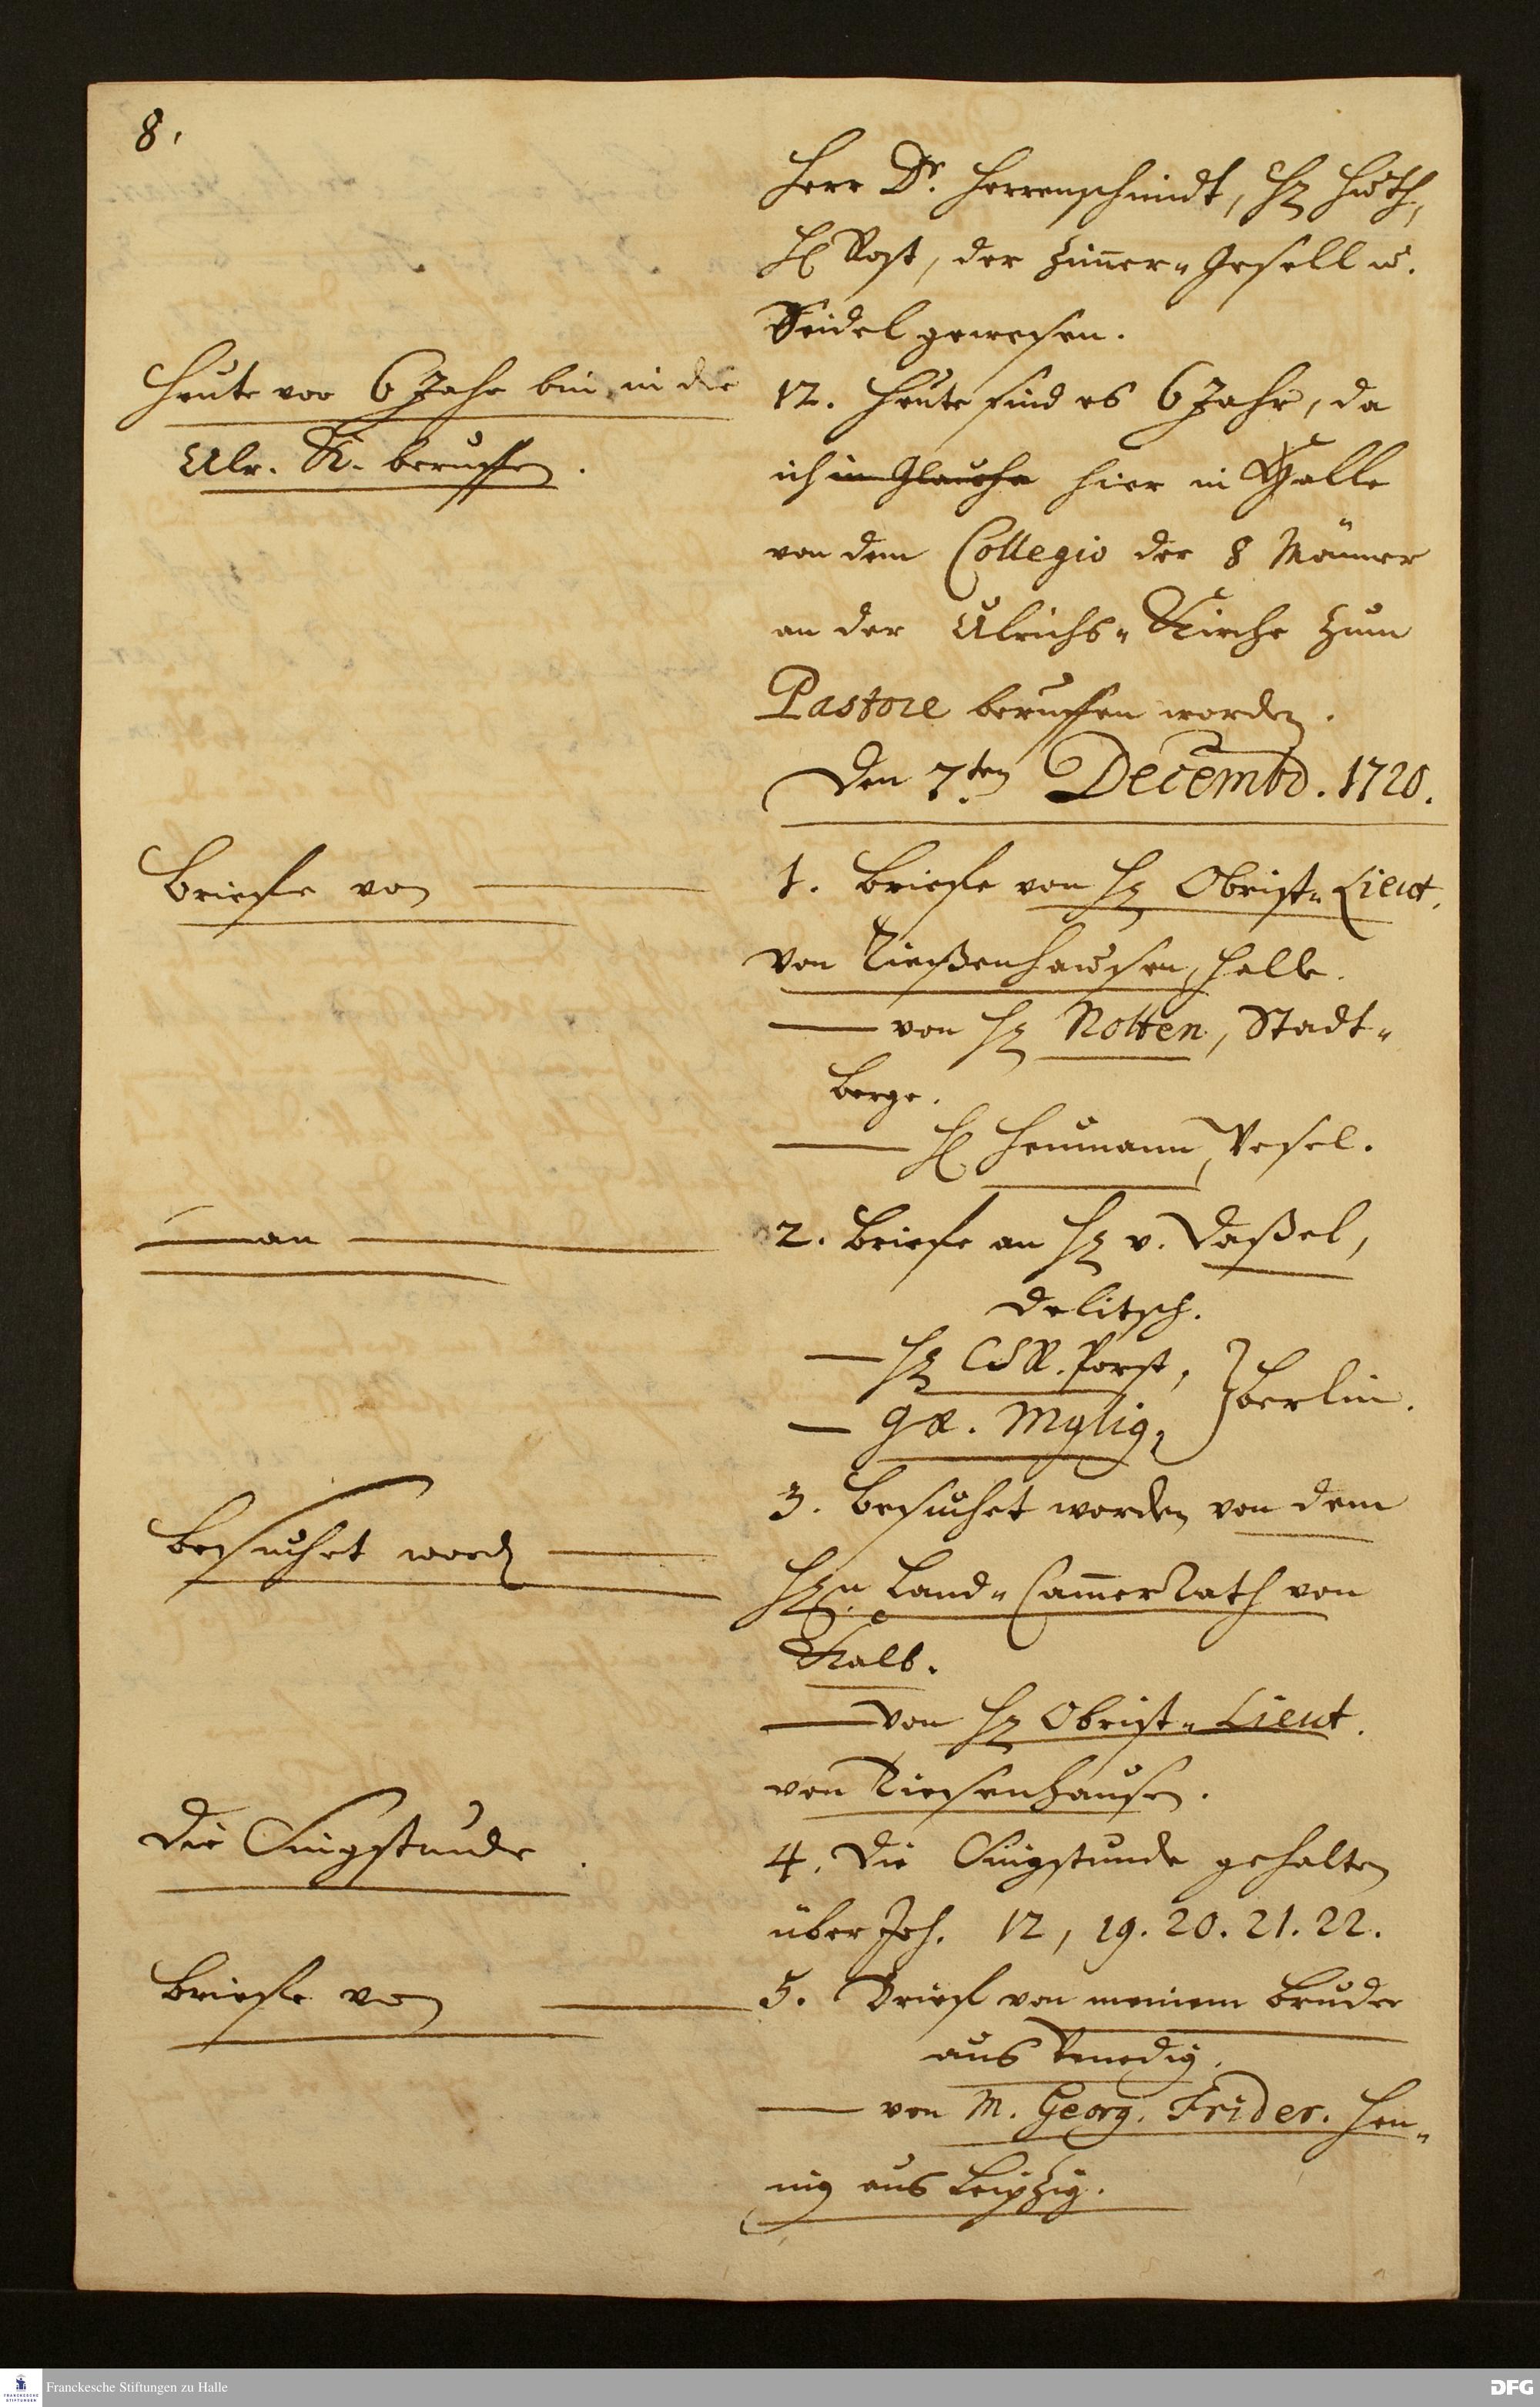 8.
Herr Dr. Herrenschmidt, H. Huth,
H. Rost, der Zimmer-Gesell u.
Seidel gewesen.
Heute vor 6 Jahr bin in die
Ulr. K. beruffen.
12. Heute sind es 6 Jahr, da
ich in Glaucha hier in Halle
von dem Collegio der 8 Männer
an der Ulrichs-Kirche zum
Pastore beruffen worden.
Den 7.ten Decembr. 1720.
Briefe von
1. Briefe von H. Obrist-Lieut.
von Tießenhausen, Halle.
von H. Nolten, Stadt-
berge.
H. Heumann, Wesel.
an
2. Briefe an H. v. Daßel,
Delitsch.
H. CSR. Porst,
G. Mylig,
Berlin.
Besuchet word.
3. Besuchet worden von dem
H.n Land-CammerRath von
Kalb.
von H. Obrist-Lieut.
von Tiesenhausen.
Die Singstunde.
4. Die Singstunde gehalten
über Joh. 12, 19. 20. 21. 22.
Briefe von
5. Brief von meinem Bruder
aus Venedig.
von M. Georg. Frider. Hen-
nig aus Leipzig.
Franckesche Stiftungen zu Halle
DFG